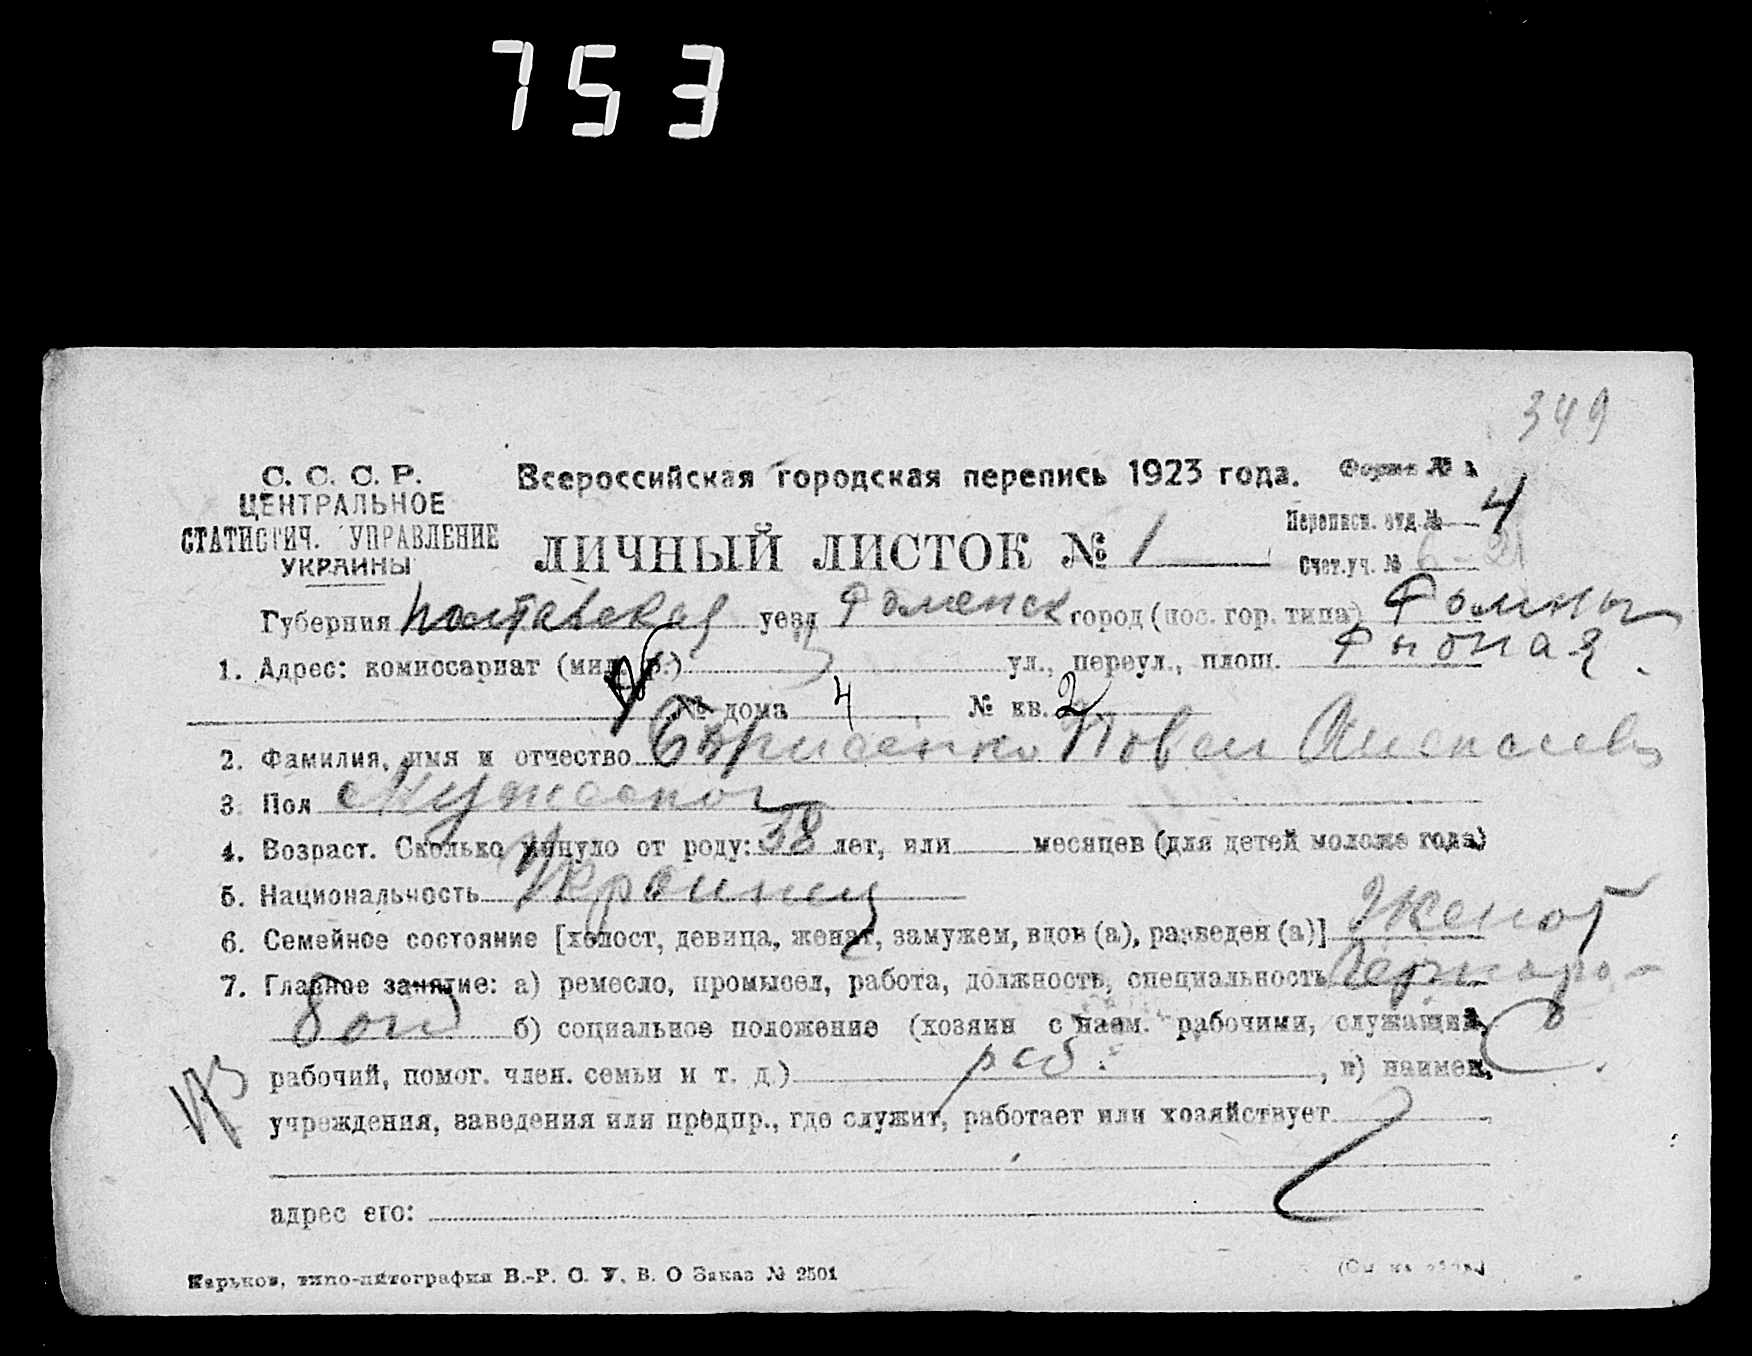 753
349
С. С. С. Р.
ЦЕНТРАЛЬНОЕ
СТАТИСТИЧ. УПРАВЛЕНИЕ
УКРАИНЫ
Всероссийская городская перепись 1923 года.
Форма № 1
ЛИЧНЫЙ ЛИСТОК № 1
Переписн. отд. № 4
Счет. уч. № 6-21
Губерния Полтавская уезд Роменск город (пос. гор. типа) Ромны
1. Адрес: комиссариат (мил. р.) 3 ул., переул., площ.
№ дома 4, № кв. 2
2. Фамилия, имя и отчество Борисенко Повел Алексеев
3. Пол Мужеской
4. Возраст. Сколько минуло от роду: 38 лет, или месяцев (для детей моложе года)
5. Национальность Украинец
6. Семейное состояние [холост, девица, женат, замужем, вдов (а), разведен (а)] Женат
7. Главное занятие: а) ремесло, промысел, работа, должность, специальность Чернора-
бочий б) социальное положение (хозяин с наем. рабочими, служащий,
рабочий, помог. член. семьи и т. д.) раб. , в) наимен.
учреждения, заведения или предпр., где служит, работает или хозяйствует
адрес его:
Харьков, типо-литография В.-Р. С. У. В. О Заказ № 2501